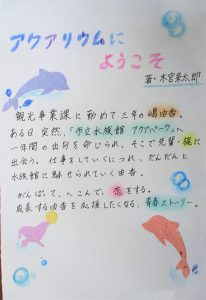 アクアリウムに
ようこそ
著・木宮条太郎
観光事業課に勤めて三年の嶋由香。
ある日突然、「市立水族館 アクアパーク」へ
一年間の出向を命じられ、そこで先輩・梶に
出会う。仕事をしていくにつれ、だんだんと
水族館に魅せられていく由香。
がんばって、へこんで、恋をする。
成長する由香を応援したくなる、青春ストーリー。